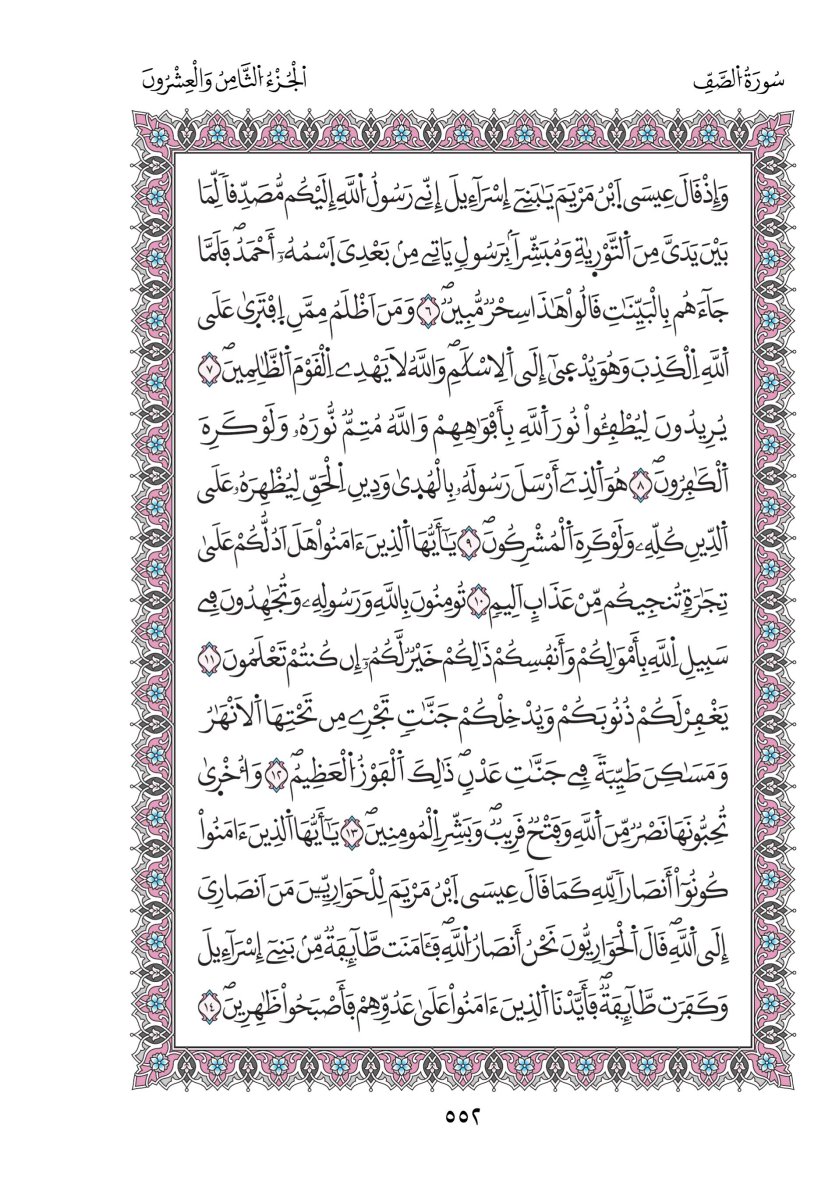 سُورَةُ اُ۬لصَّفِّ
اَ۬لْجُزْءُ اُ۬لثَّامِنُ وَالْعِشْرُونَ
وَإِذْ قَالَ عِيسَى اَ۪بْنُ مَرْيَمَ يَٰبَنِےٓ إِسْرَآءِيلَ إِنِّے رَسُولُ اُ۬للَّهِ إِلَيْكُم مُّصَدِّقاٗ لِّمَا
بَيْنَ يَدَيَّ مِنَ اَ۬لتَّوْر۪يٰةِ وَمُبَشِّراَۢ بِرَسُولٖ يَاتِے مِنۢ بَعْدِيَ اَ۪سْمُهُۥٓ أَحْمَدُۖ فَلَمَّا
جَآءَهُم بِالْبَيِّنَٰتِ قَالُواْ هَٰذَا سِحْرٞ مُّبِينٞۖ ٦ وَمَنَ اَظْلَمُ مِمَّنِ اِ۪فْتَر۪يٰ عَلَي
اَ۬للَّهِ اِ۬لْكَذِبَ وَهُوَ يُدْع۪ىٰٓ إِلَي اَ۬لِاسْلَٰمِۖ وَاللَّهُ لَا يَهْدِے اِ۬لْقَوْمَ اَ۬لظَّٰلِمِينَۖ ٧
يُرِيدُونَ لِيُطْفِـُٔواْ نُورَ اَ۬للَّهِ بِأَفْوَٰهِهِمْ وَاللَّهُ مُتِمّٞ نُّورَهُۥ وَلَوْ كَرِهَ
اَ۬لْكَٰفِرُونَۖ ٨ هُوَ اَ۬لذِےٓ أَرْسَلَ رَسُولَهُۥ بِالْهُد۪يٰ وَدِينِ اِ۬لْحَقِّ لِيُظْهِرَهُۥ عَلَي
اَ۬لدِّينِ كُلِّهِۦ وَلَوْ كَرِهَ اَ۬لْمُشْرِكُونَۖ ٩ يَٰٓأَيُّهَا اَ۬لذِينَ ءَامَنُواْ هَلَ اَدُلُّكُمْ عَلَيٰ
تِجَٰرَةٖ تُنجِيكُم مِّنْ عَذَابٍ اَلِيمٖ ١٠ تُومِنُونَ بِاللَّهِ وَرَسُولِهِۦ وَتُجَٰهِدُونَ فِے
سَبِيلِ اِ۬للَّهِ بِأَمْوَٰلِكُمْ وَأَنفُسِكُمْ ذَٰلِكُمْ خَيْرٞ لَّكُمُۥٓ إِن كُنتُمْ تَعْلَمُونَ ١١
يَغْفِرْ لَكُمْ ذُنُوبَكُمْ وَيُدْخِلْكُمْ جَنَّٰتٖ تَجْرِے مِن تَحْتِهَا اَ۬لَانْهَٰرُ
وَمَسَٰكِنَ طَيِّبَةٗ فِے جَنَّٰتِ عَدْنٖۖ ذَٰلِكَ اَ۬لْفَوْزُ اُ۬لْعَظِيمُۖ ١٢ وَأُخْر۪يٰ
تُحِبُّونَهَا نَصْرٞ مِّنَ اَ۬للَّهِ وَفَتْحٞ قَرِيبٞۖ وَبَشِّرِ اِ۬لْمُومِنِينَۖ ١٣ يَٰٓأَيُّهَا اَ۬لذِينَ ءَامَنُواْ
كُونُوٓاْ أَنصَاراٗ لِّلهِ كَمَا قَالَ عِيسَى اَ۪بْنُ مَرْيَمَ لِلْحَوَارِيِّـۧنَ مَنَ اَنصَارِيَ
إِلَي اَ۬للَّهِۖ قَالَ اَ۬لْحَوَارِيُّونَ نَحْنُ أَنصَارُ اُ۬للَّهِۖ فَـَٔامَنَت طَّآئِفَةٞ مِّنۢ بَنِےٓ إِسْرَآءِيلَ
وَكَفَرَت طَّآئِفَةٞۖ فَأَيَّدْنَا اَ۬لذِينَ ءَامَنُواْ عَلَيٰ عَدُوِّهِمْ فَأَصْبَحُواْ ظَٰهِرِينَۖ ١٤
٥٥٢